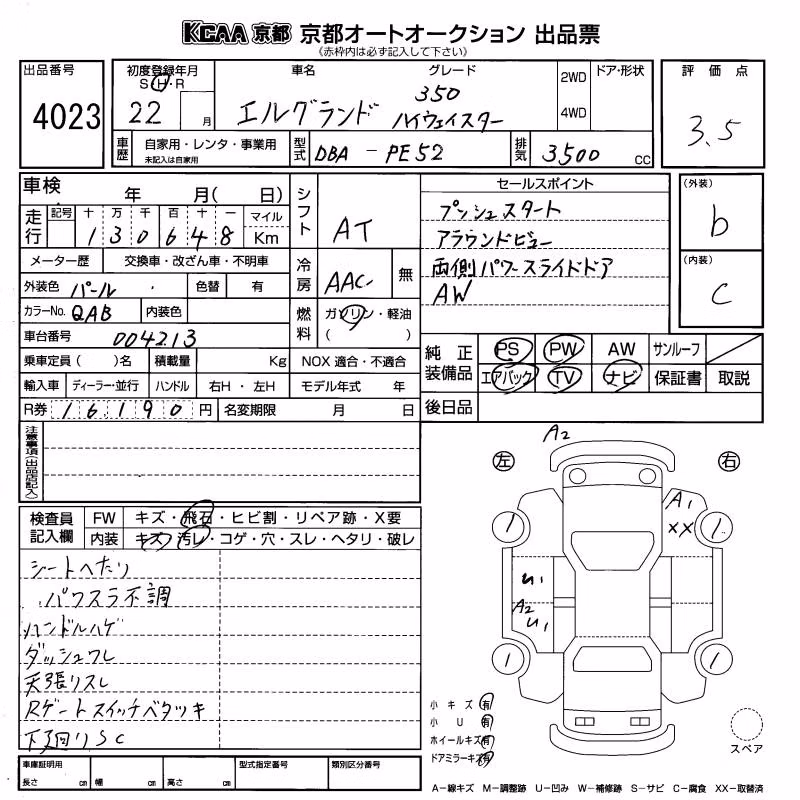 KCAA 京都 京都オートオークション 出品票
《赤枠内は必ず記入して下さい》
出品番号
4023
初度登録年月
S・H・R
22 月
車名 グレード
エルグランド 350
ハイウェイスター
2WD
4WD
ドア・形状
評価点
3.5
車歴
自家用・レンタ・事業用
未記入は自家用
型式
DBA - PE52
排気
3500 CC
車検 年 月( 日)
走行
記号 十 万 千 百 十 一 マイル
1 3 0 6 4 8 Km
メーター歴 交換車・改ざん車・不明車
外装色 パール 色替 有
カラーNo. QAB 内装色
車台番号 004213
乗車定員( )名 積載量 Kg
輸入車 ディーラー・並行 ハンドル 右H・左H
R券 1 6 1 9 0 円 名変期限 月 日
シフト
AT
冷房
AAC 無
燃料
ガソリン・軽油
( )
NOX 適合・不適合
モデル年式 年
セールスポイント
プッシュスタート
アラウンドビュー
両側パワースライドドア
AW
(外装)
b
(内装)
C
純正装備品
PS PW AW サンルーフ
エアバック TV ナビ 保証書 取説
後日品
注意事項(出品店記入)
検査員記入欄
FW キズ・飛石・ヒビ割・リペア跡・X要
内装 キズ・汚レ・コゲ・穴・スレ・ヘタリ・破レ
シートへたり
パワスラ不調
ハンドルハゲ
ダッシュワレ
天張リスレ
Rゲートスイッチベタツキ
下廻りSC
左 右
A2
A1
XX
U1
A2
U1
1
1
1
1
小キズ 有
小U 有
ホイールキズ 有
ドアミラーキズ 有
スペア
車庫証明用
長さ cm 幅 cm 高さ cm
型式指定番号
類別区分番号
A−線キズ M−調整跡 U−凹み W−補修跡 S−サビ C−腐食 XX−取替済